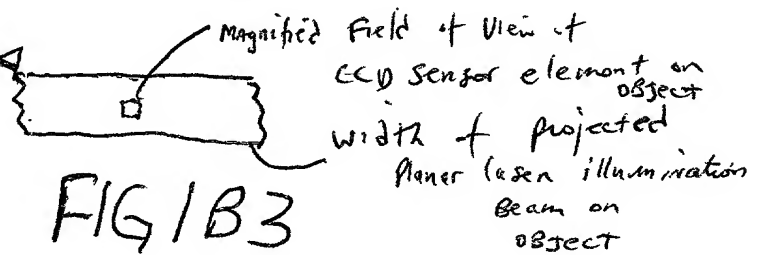 Magnified Field of View of
CCD Sensor element on
OBJect
width of projected
Planar laser illumination
Beam on
OBJECT
FIG 1B3